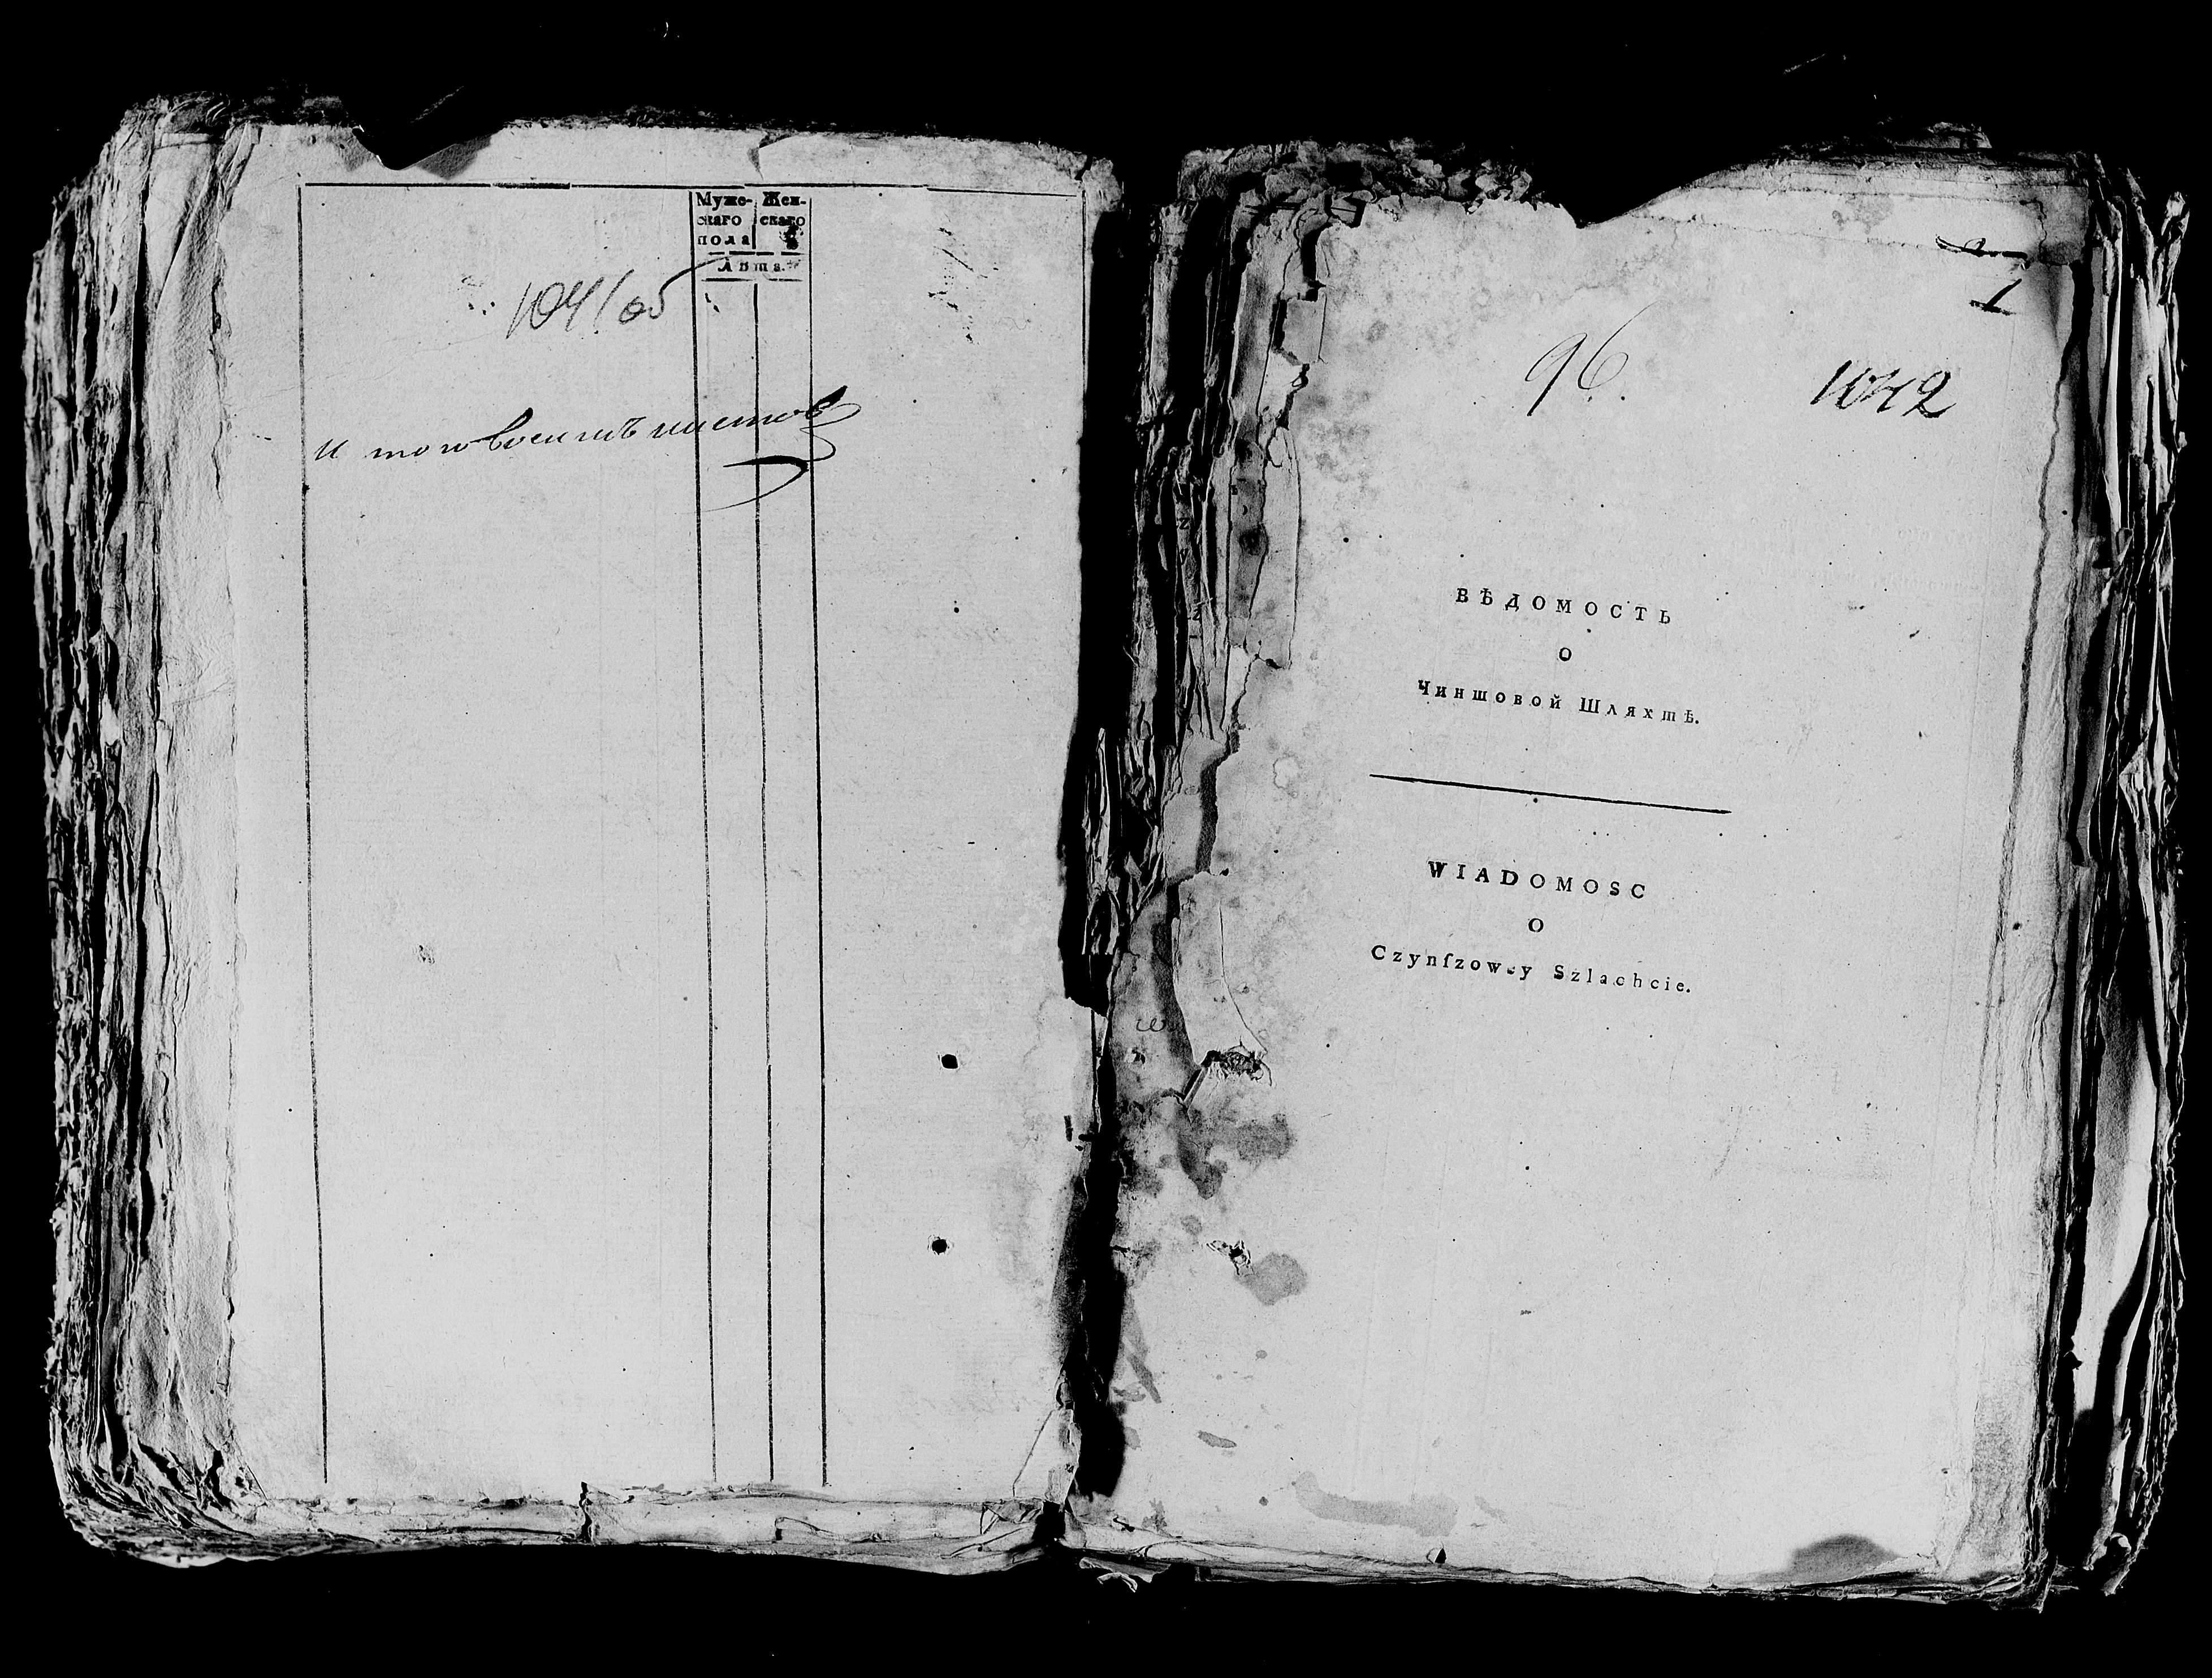 Муже-
скаго
пола
Жен-
скаго
Лѣта.
1041/об
и того восемь листов
1
96.
1042
ВѢДОМОСТЬ
О
Чиншовой Шляхтѣ.
WIADOMOSC
O
Czynſzowey Szlachcie.